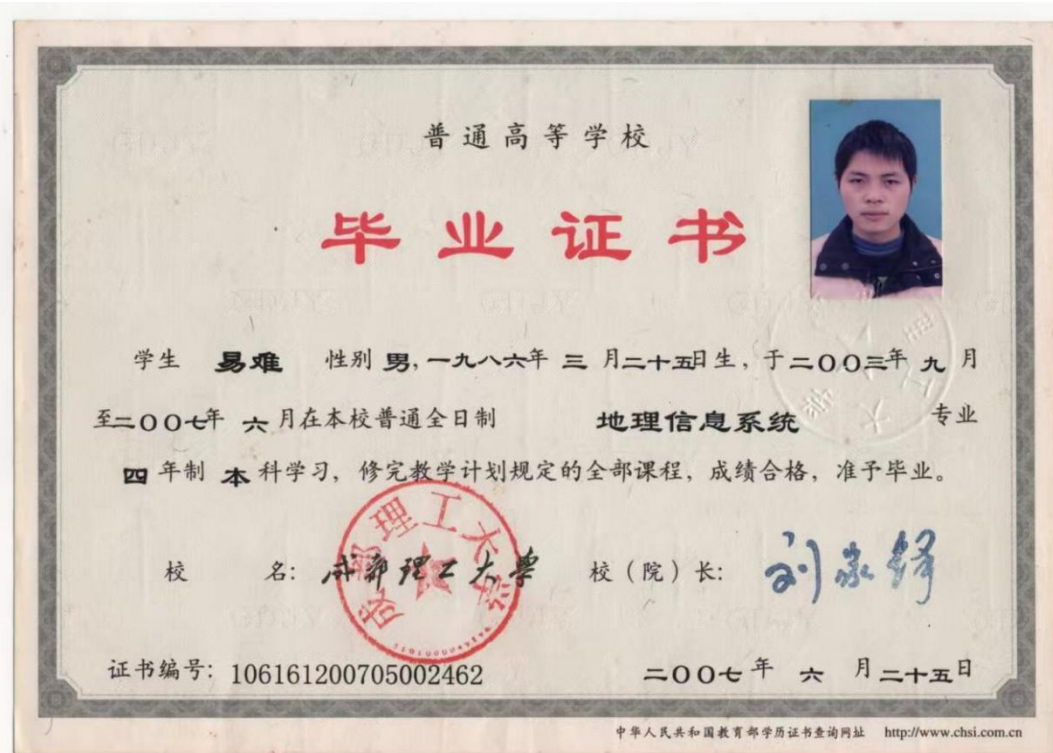 普通高等学校
毕业证书
学生 易难 性别 男，一九八六年 三 月二十五日生，于二〇〇三年 九 月
至二〇〇七年 六 月在本校普通全日制 地理信息系统 专业
四 年制 本 科学习，修完教学计划规定的全部课程，成绩合格，准予毕业。
校 名：成都理工大学 校（院）长：刘家铎
成都理工大学
证书编号：106161200705002462
二〇〇七年 六 月二十五日
中华人民共和国教育部学历证书查询网址 http://www.chsi.com.cn